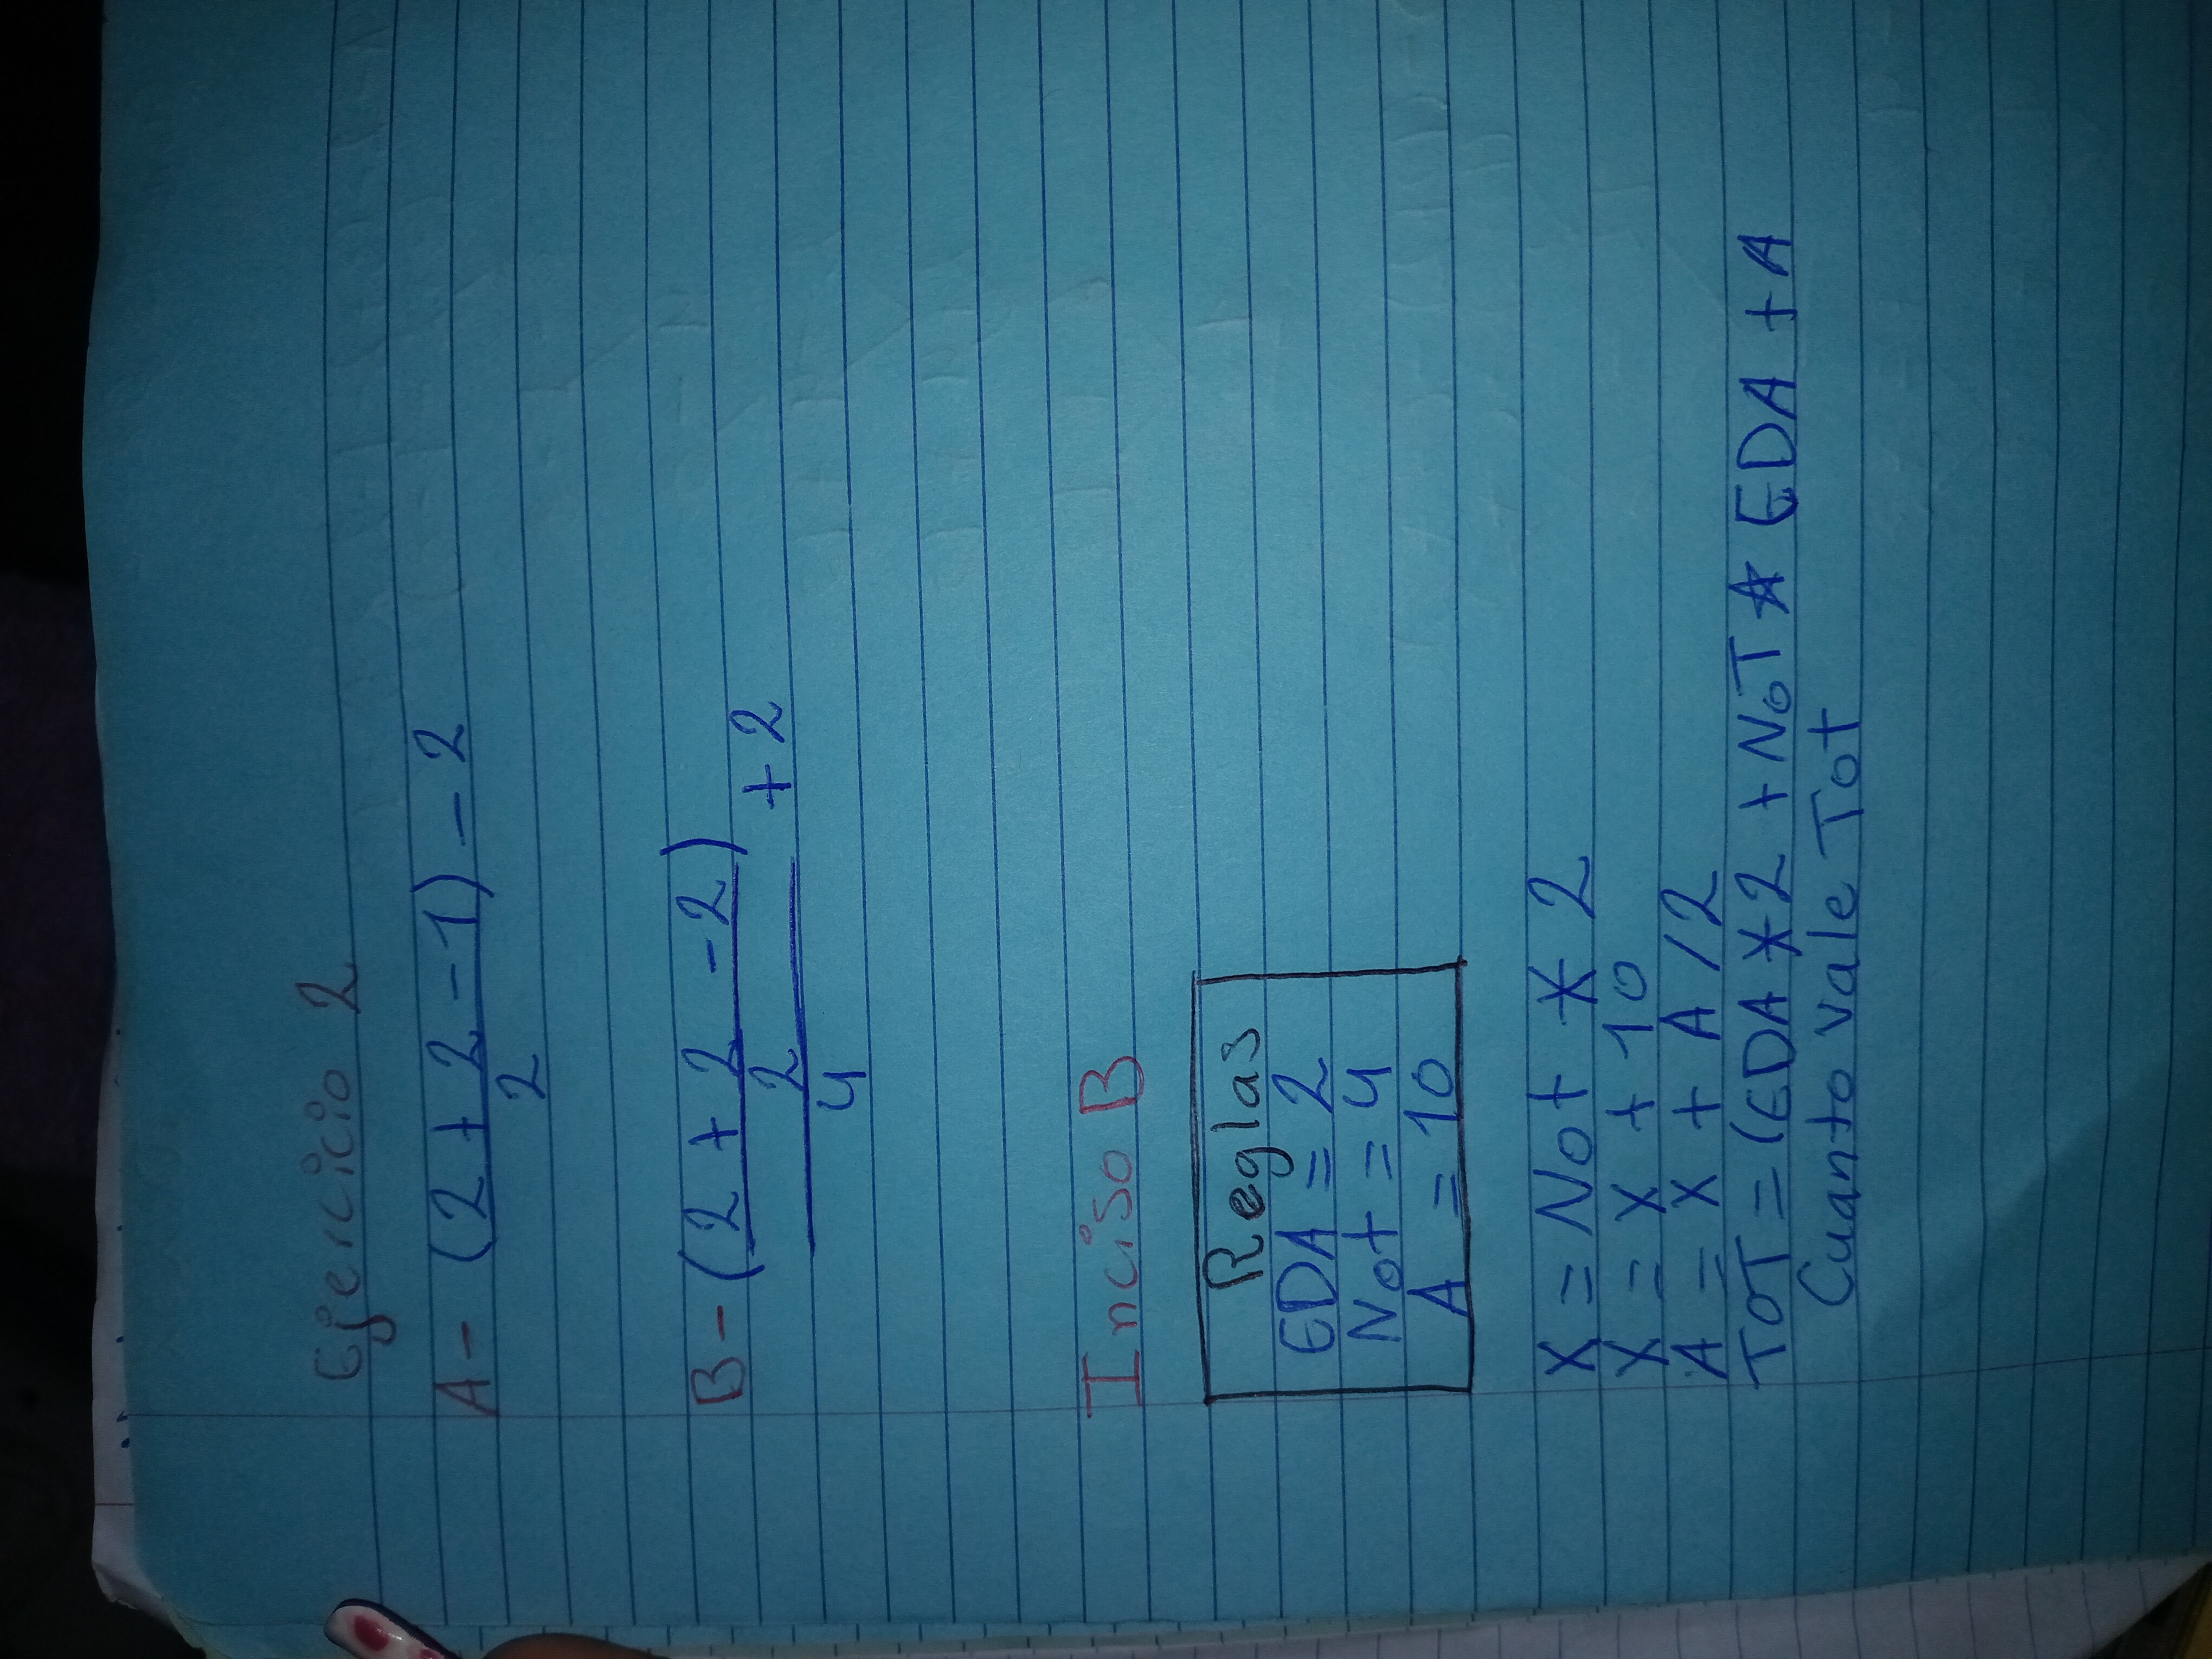 Ejercicio 2
A- (2 + 2 - 1) - 2
2
B- (2 + 2 - 2) + 2
2
4
Inciso B
Reglas
EDA = 2
Not = 4
A = 10
X = Not * 2
X = X + 10
A = X + A / 2
TOT = (EDA * 2 + NoT * EDA + A
Cuanto vale Tot